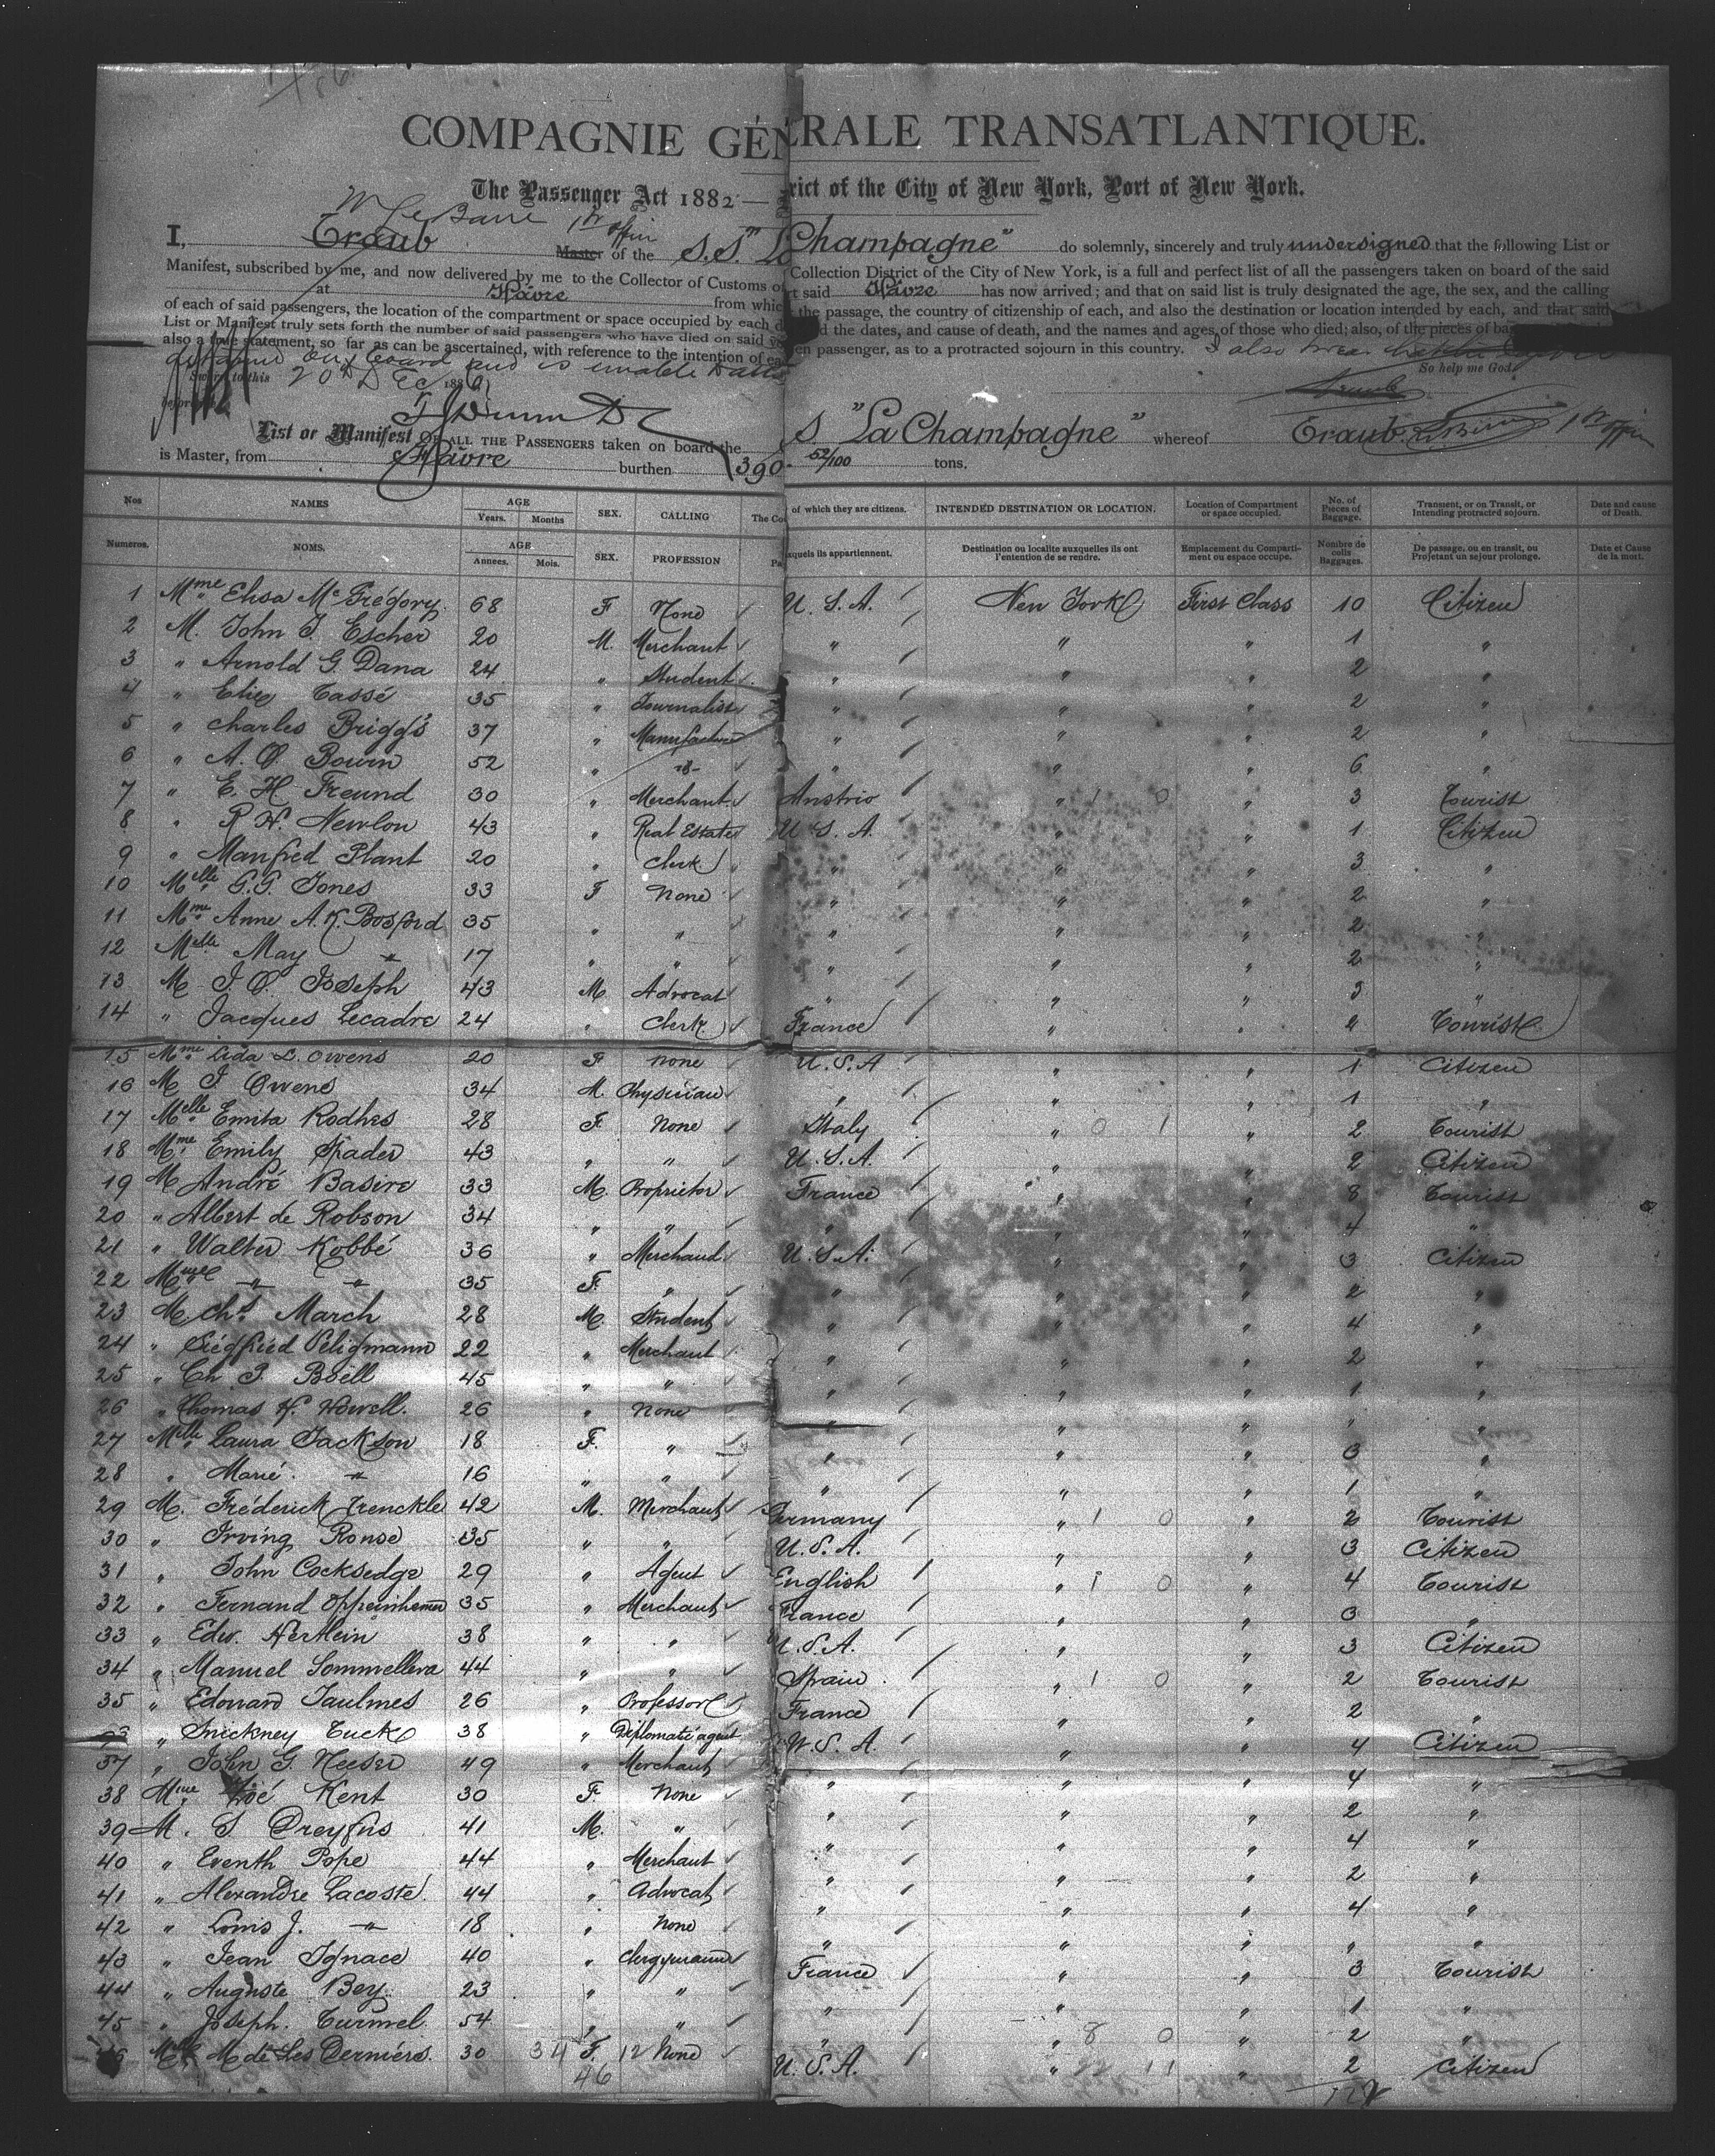 COMPAGNIE GÉNÉRALE TRANSATLANTIQUE.
The Passenger Act 1882 — rict of the City of New York, Port of New York.
W Le Barre 1st offir
I, Traub Master of the S.S. "La Champagne" do solemnly, sincerely and truly undersigned that the following List or
Manifest, subscribed by me, and now delivered by me to the Collector of Customs of Collection District of the City of New York, is a full and perfect list of all the passengers taken on board of the said
at Hâvre from which said Hâvre has now arrived; and that on said list is truly designated the age, the sex, and the calling
of each of said passengers, the location of the compartment or space occupied by each d the passage, the country of citizenship of each, and also the destination or location intended by each, and that said
List or Manifest truly sets forth the number of said passengers who have died on said v d the dates, and cause of death, and the names and ages of those who died; also, of the pieces of ba
also a true statement, so far as can be ascertained, with reference to the intention of ea en passenger, as to a protracted sojourn in this country. I also swear
on board and is unable to
Sworn to this 20th Dec 1886 So help me God.
before Traub
List or Manifest OF ALL THE PASSENGERS taken on board the S. "La Champagne" whereof Traub 1st offir
is Master, from Hâvre burthen 390 52/100 tons.
Nos NAMES AGE Years. Months SEX. CALLING The Cou of which they are citizens. INTENDED DESTINATION OR LOCATION. Location of Compartment or space occupied. No. of Pieces of Baggage. Transient, or on Transit, or Intending protracted sojourn. Date and cause of Death.
Numeros. NOMS. AGE Annees. Mois. SEX. PROFESSION Pa xquels ils appartiennent. Destination ou localite auxquelles ils ont l'entention de se rendre. Emplacement du Comparti-ment ou espace occupe. Nombre de colis Baggages. De passage, ou en transit, ou Projetant un sejour prolonge. Date et Cause de la mort.
1 Mme Elisa Mc Gregory. 68 F None U. S. A. New York First Class 10 Citizen
2 M. John J. Escher 20 M. Merchant " " " 1 "
3 " Arnold G. Dana 24 " Student " " " 2 "
4 " Elie Tassé 35 " Journalist " " " 2 "
5 " Charles Briggs 37 " Manufacturer " " " 2 "
6 " A. O. Bourn 52 " -d- " " " 6 "
7 " E. H. Freund 30 " Merchant Austria " 1 0 " 3 Tourist
8 " R H. Newlon 43 " Real Estate U S. A. " " 1 Citizen
9 " Manfred Plant 20 " Clerk " " " 3 "
10 Melle G.G. Jones 33 F None " " " 2 "
11 Mme Anne A. K. Bosford 35 " " " " " 2 "
12 Melle May " 17 " " " " " 2 "
13 M J. O. Joseph 43 M Advocat " " " 3 "
14 " Jacques Lecadre 24 " Clerk France " " " Tourist
15 Mme Lida L. Owens 20 F None U. S. A " " 1 Citizen
16 M J. Owens 34 M. Physician " " " 1 "
17 Melle Emita Rodhes 28 F. None Italy " 0 1 " 2 Tourist
18 Mme Emily Spader 43 " " U. S. A. " " 2 Citizen
19 M André Basire 33 M. Proprietor France " " 8 Tourist
20 " Albert de Robson 34 " " " " " 4 "
21 " Walter Kobbé 36 " Merchand U. S. A. " " 3 Citizen
22 Mme " " 35 F. " " " " 2 "
23 M Chs March 28 M. Student " " " 4 "
24 " Siegfried Peligmann 22 " Merchant " " " 2 "
25 " Ch. J. Boell 45 " " " " " 1 "
26 " Thomas H. Howell. 26 " None " " " " "
27 Melle Laura Jackson 18 F. " " " " 3 "
28 " Marie. " 16 " " " " " 1 "
29 M. Fréderick Frenckle 42 M. Merchant Germany " 1 0 " 2 Tourist
30 " Irving Ronse 35 " " U. S. A. " " 3 Citizen
31 " John Cocksedge 29 " Agent English " 1 0 " 4 Tourist
32 " Fernand Oppenheimer 35 " Merchant France " " 3 "
33 " Edw. Hertlein 38 " " U. S. A. " " 3 Citizen
34 " Manuel Sommellera 44 " " Spain " 1 0 " 2 Tourist
35 " Edouard Jaulmes 26 " Professor France " " 2 "
" Snickney Tuck 38 " Diplomatic agent U. S. A. " " 4 Citizen
37 " John G. Neeser 49 " Merchant " " " 4 "
38 Mme Zoé Kent 30 F. None " " " 2 "
39 M. S Dreyfus 41 M. " " " " 4 "
40 " Eventh Pope 44 " Merchant " " " 2 "
41 " Alexandre Lacoste 44 " Advocat " " " 4 "
42 " Louis J. " 18 " None " " " " "
43 " Jean Ignace 40 " Clergymann France " " 3 Tourist
44 " Auguste Bey 23 " " " " " 1 "
45 " Joseph. Turmel 54 " " " " 8 0 " 2 "
46 Melle M de Les Derniers. 30 34 F. 12 None U. S. A. " 22 11 " 2 Citizen
46 122